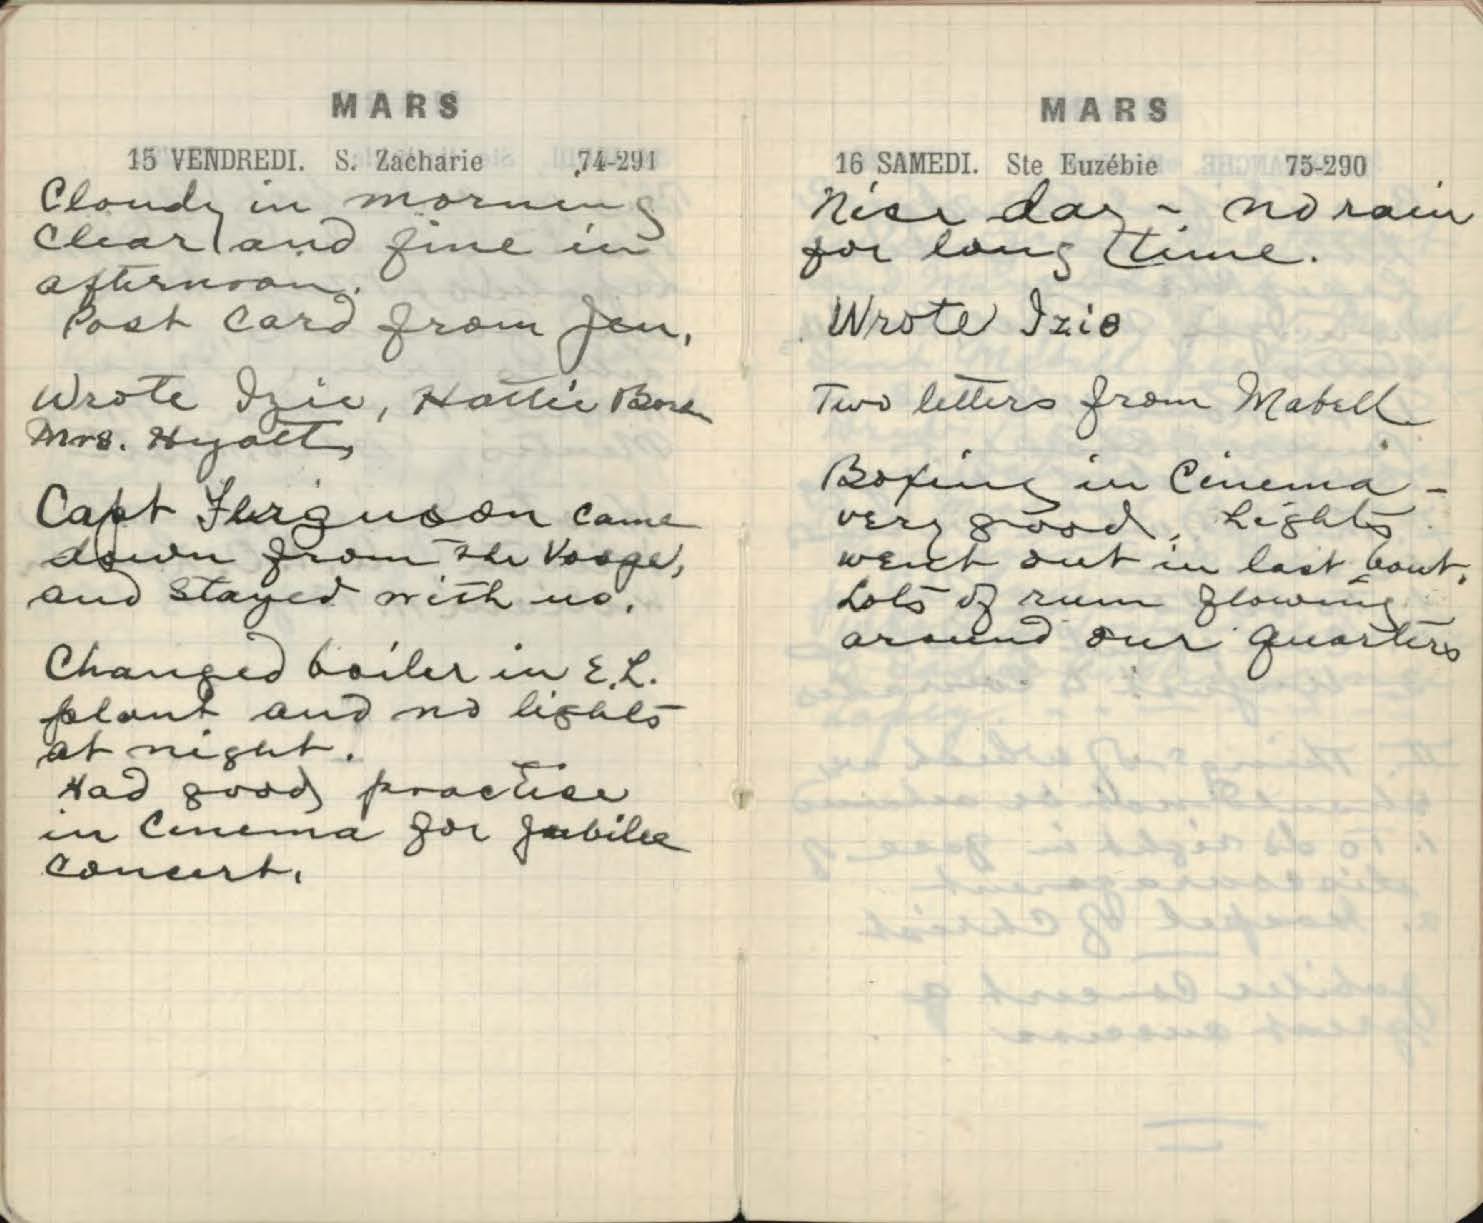 MARS
15 VENDREDI. S. Zacharie 74-291
Cloudy in morning
Clear and fine in
afternoon.
Post Card from Jen.
Wrote Izie, Hattie
Mrs. Hyatt
Capt Ferguson came
down from the Vosges,
and stayed with us.
Changed boiler in E.L.
plant and no lights
at night.
Had good practice
in Cinema for Jubilee
Concert.
MARS
16 SAMEDI. Ste Euzébie 75-290
Nice day - no rain
for long time.
Wrote Izie
Two letters from Mabell
Boxing in Cinema -
very good. Lights
went out in last bout.
Lots of rum flowing
around our quarters